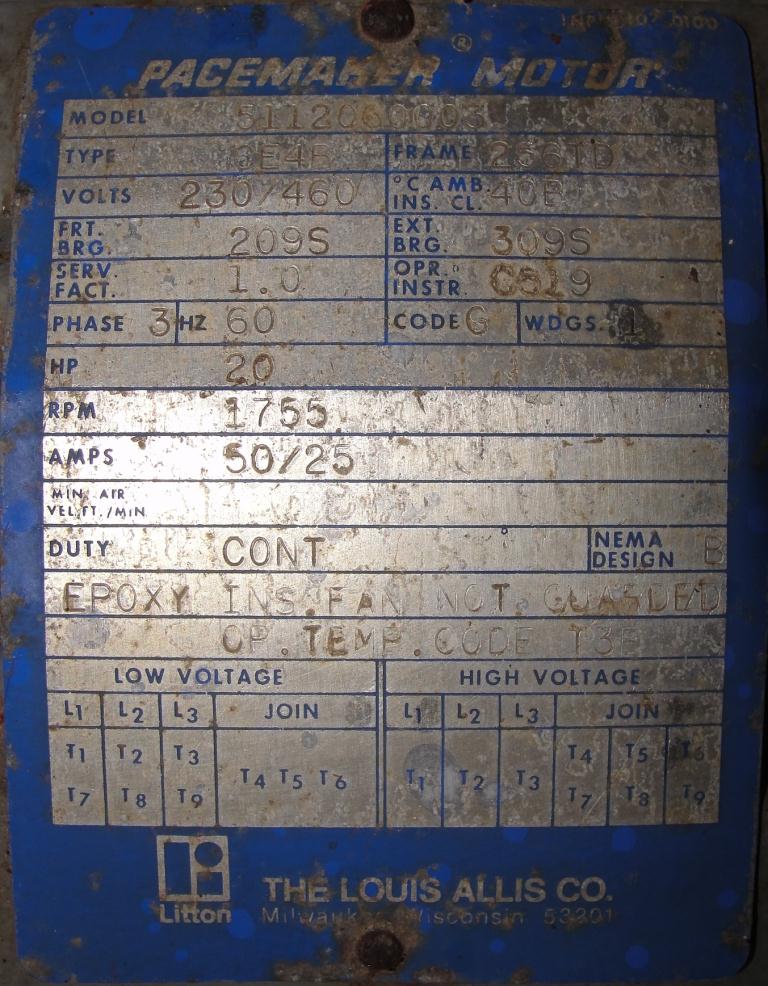 PACEMAKER ® MOTOR
MODEL 5112060003
TYPE FRAME 256TD
VOLTS 230/460 °C AMB. INS. CL. 40B
FRT. BRG. 209S EXT. BRG. 309S
SERV. FACT. 1.0 OPR. INSTR. C519
PHASE 3 HZ 60 CODE G WDGS. 1
HP 20
RPM 1755
AMPS 50/25
MIN. AIR VEL.FT./MIN
DUTY CONT NEMA DESIGN B
EPOXY INS.FAN NOT GUARDED
OP.TEMP.CODE T3B
LOW VOLTAGE HIGH VOLTAGE
L1 L2 L3 JOIN L1 L2 L3 JOIN
T1 T2 T3 T4 T5 T6
T7 T8 T9 T4 T5 T6 T1 T2 T3 T7 T8 T9
Litton THE LOUIS ALLIS CO.
Milwaukee Wisconsin 53201